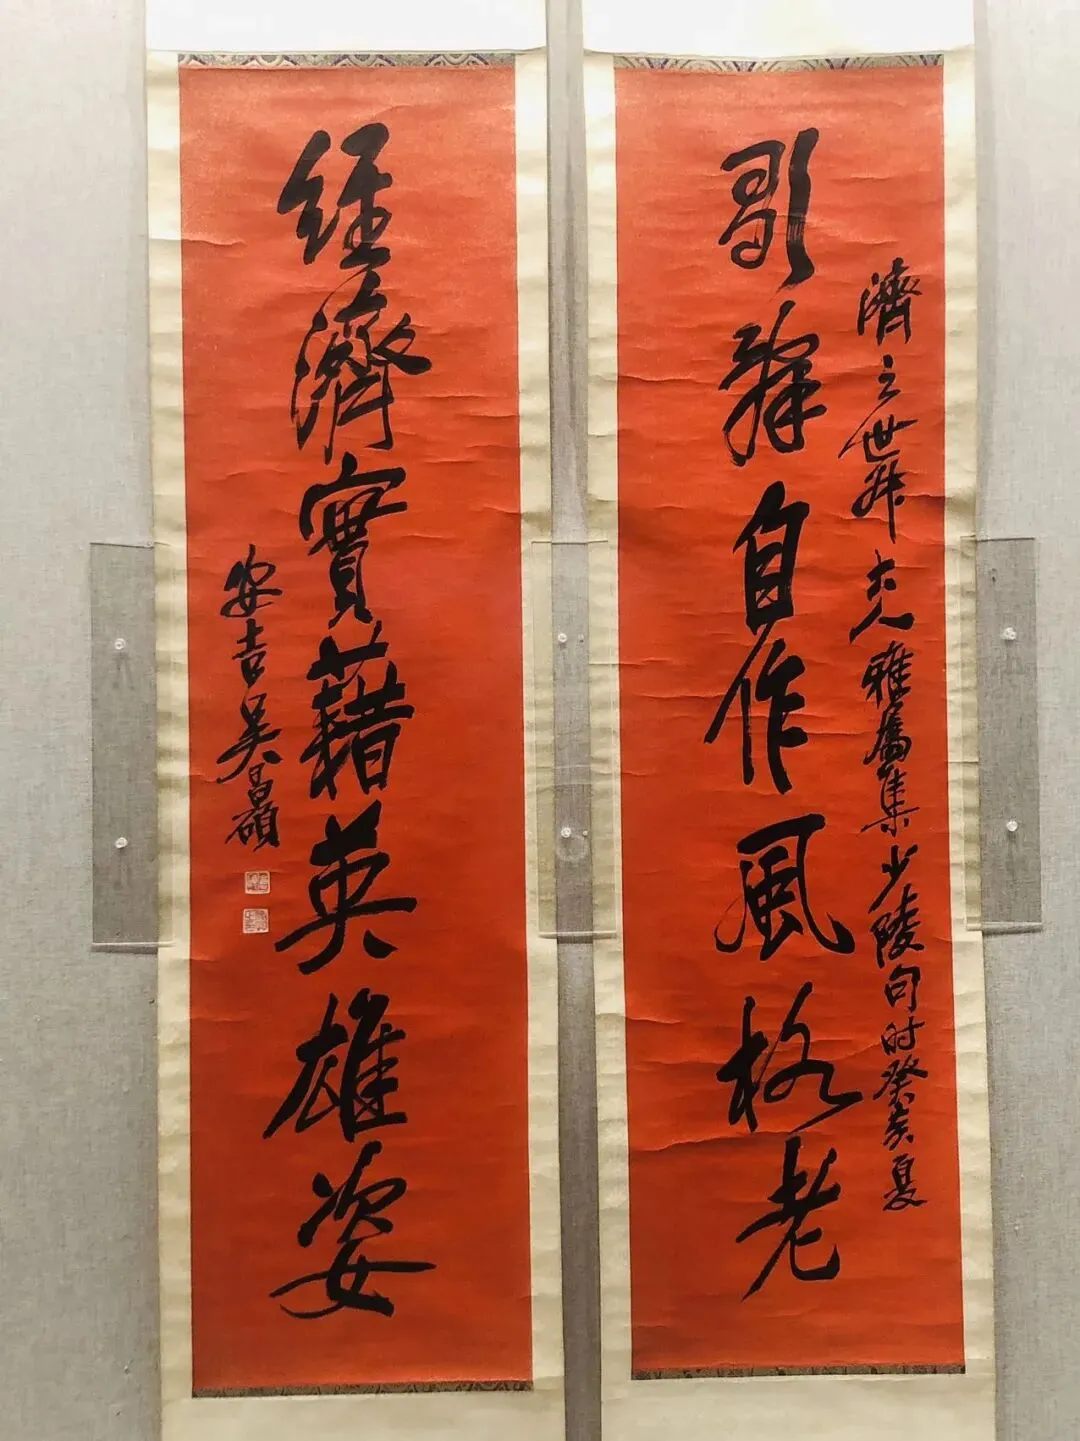 歌辭自作風格老
濟之世大人雅屬集少陵句時癸亥夏
經濟實藉英雄姿
安吉吳昌碩